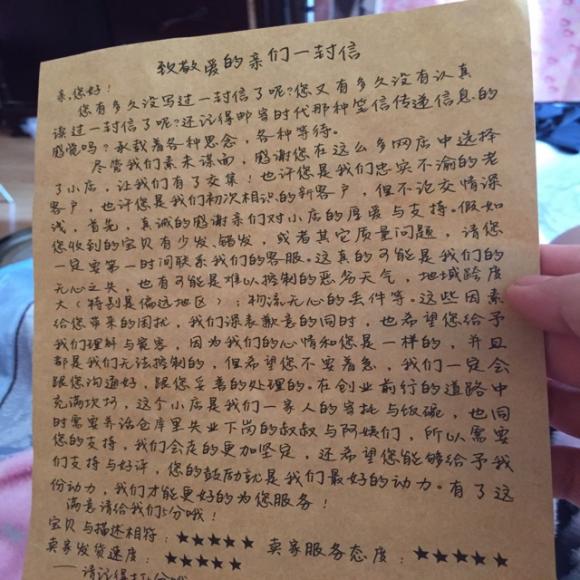 致敬爱的亲们一封信
亲,您好!
您有多久没写过一封信了呢?您又有多久没有认真
读过一封信了呢?还记得邮寄时代那种笔信传递信息的
感觉吗?承载着各种思念,各种等待。
尽管我们素未谋面,感谢您在这么多网店中选择
了小店,让我们有了交集!也许您是我们忠实不渝的老
客户,也许您是我们初次相识的新客户,但不论交情深
浅,首先,真诚的感谢亲们对小店的厚爱与支持。假如
您收到的宝贝有少发、错发,或者其它质量问题,请您
一定要第一时间联系我们的客服。这真的可能是我们的
无心之失,也有可能是难以控制的恶劣天气,地域跨度
大(特别是偏远地区);物流无心的丢件等。这些因素
给您带来的困扰,我们深表歉意的同时,也希望您给予
我们理解与宽容,因为我们的心情和您是一样的,并且
都是我们无法控制的,但希望您不要着急,我们一定会
跟您沟通好,跟您妥善的处理的。在创业前行的道路中
充满坎坷,这个小店是我们一家人的寄托与饭碗,也同
时需要养活仓库里失业下岗的叔叔与阿姨们,所以需要
您的支持,我们会走的更加坚定,还希望您能够给予我
们支持与好评,您的鼓励就是我们最好的动力。有了这
份动力,我们才能更好的为您服务!
满意请给我们5分哦!
宝贝与描述相符:★★★★★ 卖家服务态度:★★★★★
卖家发货速度:★★★★★
——请记得打5分哦